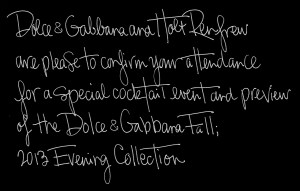 Dolce & Gabbana and Holt Renfrew
are please to confirm your attendance
for a special cocktail event and preview
of the Dolce & Gabbana Fall;
2013 Evening Collection